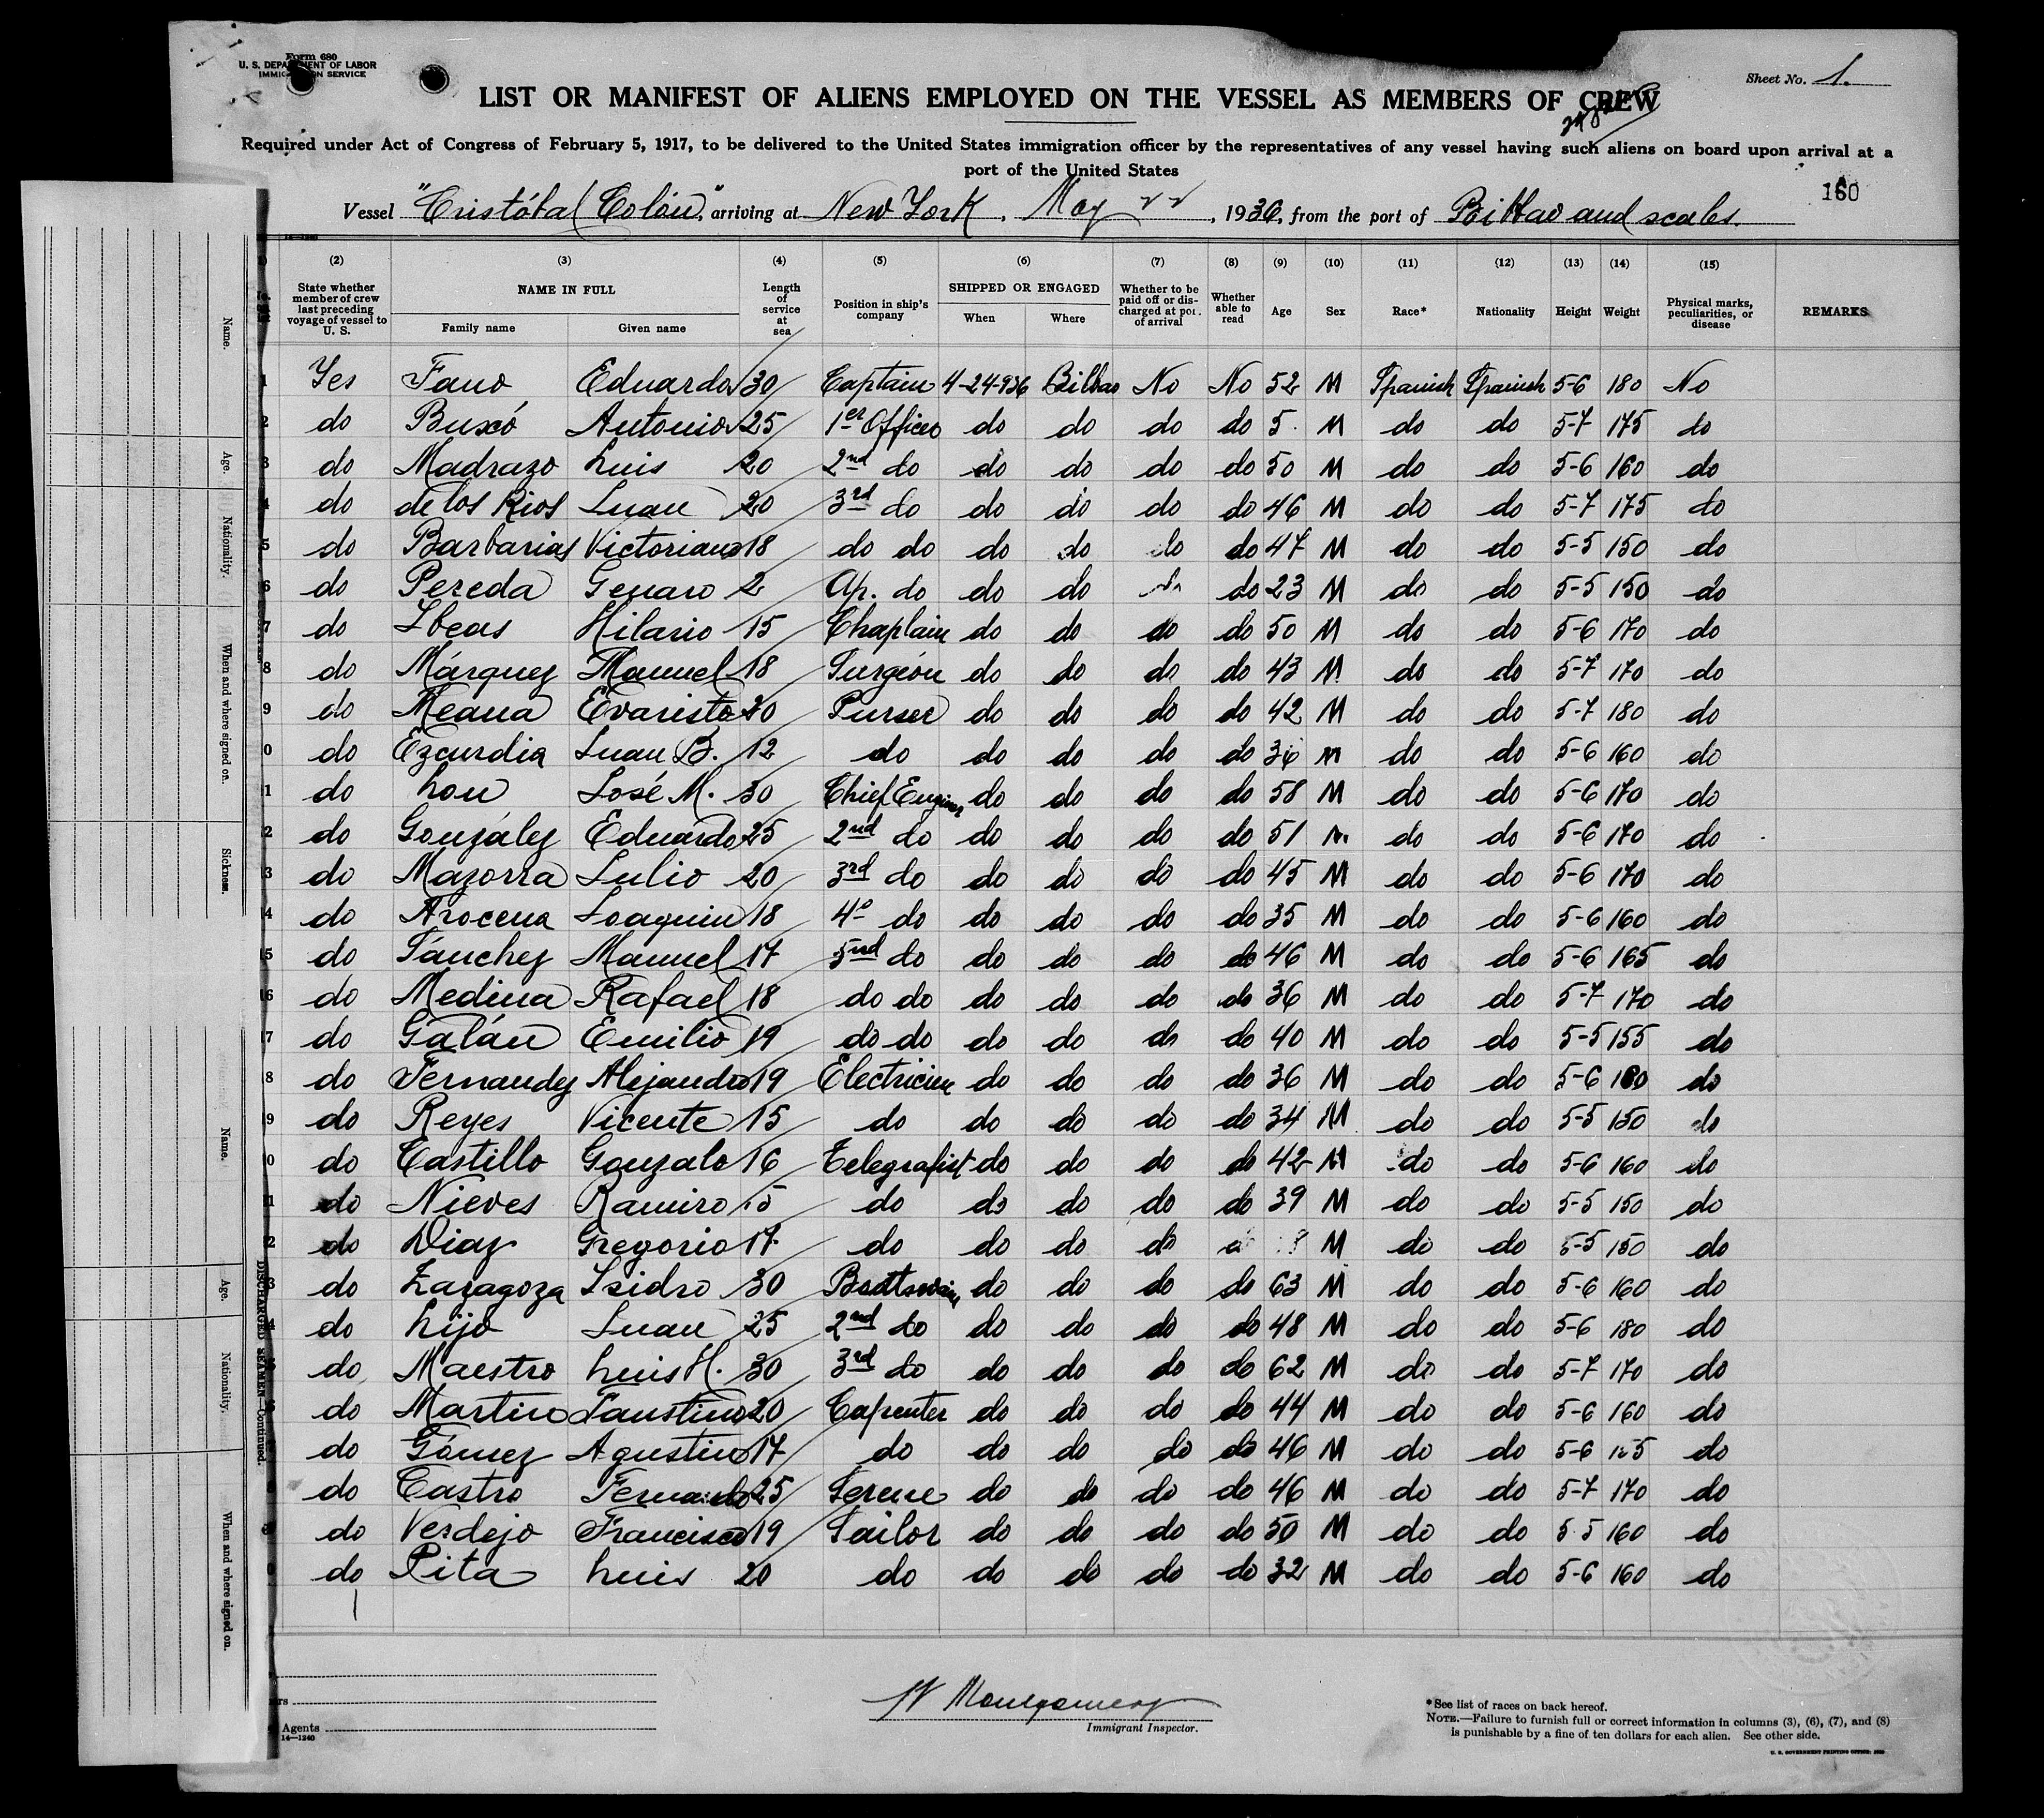 Form 680
U. S. DEPARTMENT OF LABOR
IMMIGRATION SERVICE
Sheet No. 1.
LIST OR MANIFEST OF ALIENS EMPLOYED ON THE VESSEL AS MEMBERS OF CREW
Required under Act of Congress of February 5, 1917, to be delivered to the United States immigration officer by the representatives of any vessel having such aliens on board upon arrival at a
port of the United States
160
Vessel "Cristóbal Colón", arriving at New York, May 22, 1936, from the port of Bilbao and scales.
(2) (3) (4) (5) (6) (7) (8) (9) (10) (11) (12) (13) (14) (15)
State whether member of crew last preceding voyage of vessel to U. S. NAME IN FULL Family name Given name Length of service at sea Position in ship's company SHIPPED OR ENGAGED When Where Whether to be paid off or discharged at port of arrival Whether able to read Age Sex Race* Nationality Height Weight Physical marks, peculiarities, or disease REMARKS
1 Yes Fano Eduardo 30 Captain 4-24-936 Bilbao No No 52 M Spanish Spanish 5-6 180 No
2 do Buxó Antonio 25 1er Officer do do do do 5 M do do 5-7 175 do
3 do Madrazo Luis 20 2nd do do do do do 50 M do do 5-6 160 do
4 do de los Rios Juan 20 3rd do do do do do 46 M do do 5-7 175 do
5 do Barbarias Victoriano 18 do do do do do do 47 M do do 5-5 150 do
6 do Pereda Genaro 2 Ap. do do do do do 23 M do do 5-5 150 do
7 do Ibeas Hilario 15 Chaplain do do do do 50 M do do 5-6 170 do
8 do Márquez Manuel 18 Surgeón do do do do 43 M do do 5-7 170 do
9 do Meana Evaristo 20 Purser do do do do 42 M do do 5-7 180 do
0 do Ezcurdia Juan B. 12 do do do do do 36 M do do 5-6 160 do
1 do Lou José M. 30 Chief Engineer do do do do 58 M do do 5-6 170 do
2 do González Eduardo 25 2nd do do do do do 51 M do do 5-6 170 do
3 do Mazorra Julio 20 3rd do do do do do 45 M do do 5-6 170 do
4 do Arocena Joaquin 18 4º do do do do do 35 M do do 5-6 160 do
5 do Sánchez Manuel 17 5nd do do do do do 46 M do do 5-6 165 do
6 do Medina Rafael 18 do do do do do do 36 M do do 5-7 170 do
7 do Galán Emilio 19 do do do do do do 40 M do do 5-5 155 do
8 do Fernandez Alejandro 19 Electricien do do do do 36 M do do 5-6 180 do
9 do Reyes Vicente 15 do do do do do 34 M do do 5-5 150 do
0 do Castillo Gonzalo 16 Telegrafist do do do do 42 M do do 5-6 160 do
1 do Nieves Ramiro 15 do do do do do 39 M do do 5-5 150 do
2 do Diaz Gregorio 17 do do do do 8 M do do 5-5 150 do
3 do Zaragoza Isidro 30 Boatswain do do do do 63 M do do 5-6 160 do
4 do Lijo Juan 25 2nd do do do do do 48 M do do 5-6 180 do
do Maestro Luis H. 30 3rd do do do do do 62 M do do 5-7 170 do
do Martino Faustino 20 Capenter do do do do 44 M do do 5-6 160 do
do Gómez Agustin 17 do do do do do 46 M do do 5-6 do
do Castro Fernando 25 Serene do do do do 46 M do do 5-7 170 do
do Verdejo Francisco 19 Sailor do do do do 50 M do do 5-5 160 do
do Pita Luis 20 do do do do do 32 M do do 5-6 160 do
W Montgomery
Immigrant Inspector.
Agents
14—1240
*See list of races on back hereof.
NOTE.—Failure to furnish full or correct information in columns (3), (6), (7), and (8)
is punishable by a fine of ten dollars for each alien. See other side.
U. S. GOVERNMENT PRINTING OFFICE
Name.
Age.
Nationality.
When and where signed on.
Sickness.
Name.
Age.
Nationality.
When and where signed on.
DISCHARGED SEAMEN—Continued.